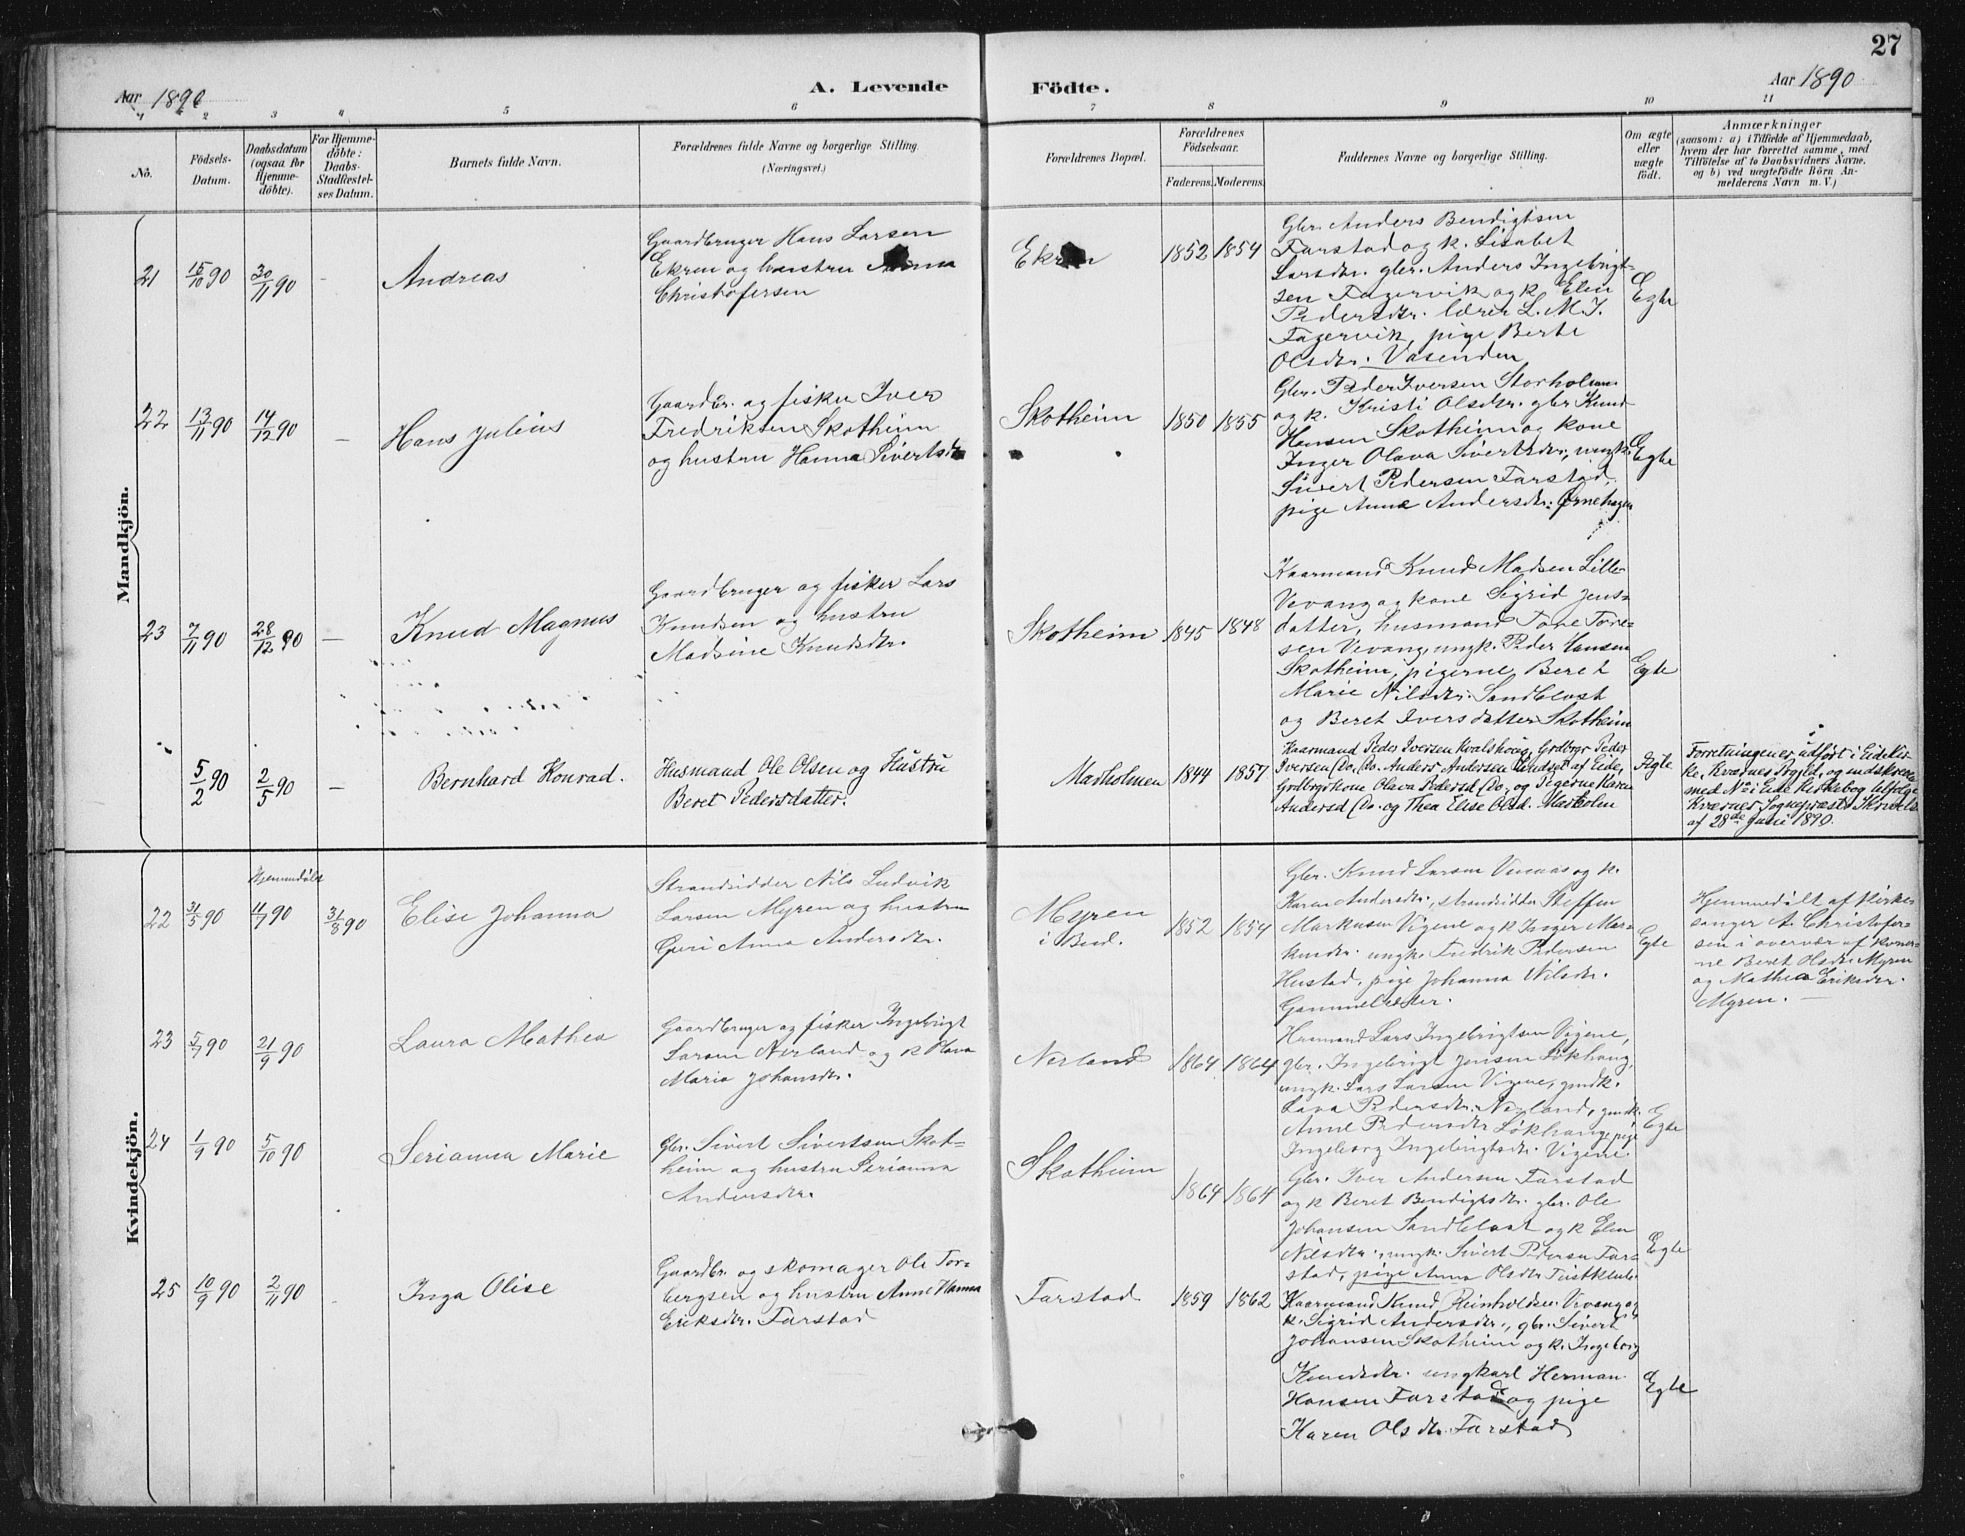 27
Aar 1890
A. Levende
Födte.
Aar 1890
1 2 3 4 5 6 7 8 9 10 11
No.
Födsels-
Datum.
Daabsdatum
(ogsaa for
Hjemme-
döbte).
For Hjemme-
döbte:
Daabs-
Stadfæstel-
ses Datum.
Barnets fulde Navn.
Forældrenes fulde Navne og borgerlige Stilling.
(Næringsvei.)
Forældrenes Bopæl.
Forældrenes
Födselsaar.
Faderens. Moderens.
Faddernes Navne og borgerlige Stilling.
Om ægte
eller
uægte
födt.
Anmærkninger
(saasom: a) i Tilfælde af Hjemmedaab,
hvem der har forrettet samme, med
Tilföielse af to Daabsvidners Navne,
og b) ved uægtefödte Börn An-
melderens Navn m. V.)
Mandkjön.
21 15/10 90 30/11 90 -
Andreas
Gaardbruger Hans Larsen
Ekren og hustru Anna
Christofersen
Ekren
1852 1854
Gbr. Anders Bendigtsen
Farstad og k. Lisabet
Larsdtr. gbr. Anders Ingebrigt-
sen Fagervik og k. Elen
Pedersdtr. lærer L. M. J.
Fagervik, pige Berte
Olsdtr. Vasenden
Egte
22 13/11 90 14/12 90 -
Hans Julius
Gaardbr. og fisker Iver
Fredriksen Skotheim
og hustru Hanna Sivertsdtr
Skotheim
1850 1855
Gbr. Peder Iversen Storholmen
og k. Kristi Olsdtr. gbr. Knud
Hansen Skotheim og kone
Inger Olava Sivertsdtr., ungk.
Sivert Pedersen Farstad,
pige Anne Andersdtr. Ørnehagen
Egte
23 7/11 90 28/12 90 -
Knud Magnus
Gaardbruger og fisker Lars
Knudsen og hustru
Madsine Knudsdtr.
Skotheim
1845 1848
Kaarmand Knud Madsen Lille
Vevang og kone Sigrid Jens-
datter, husmand Tore Tore-
sen Vevang, ungk. Peder Hansen
Skotheim, pigerne Beret
Marie Nilsdtr. Sandblast
og Beret Iversdatter Skotheim
Egte
5/2 90 2/5 90 -
Bernhard Konrad.
Husmand Ole Olsen og Hustru
Beret Pedersdatter.
Madholmen
1844 1857
Kaarmand Peder Iversen Kvalshoug, Grdbrgr Peder
Iversen Do, Do. Anders Andersen Lindset af Eide,
Grdbrgrkone Olava Pedersd Do, og Pigerne Karen
Andersd Do. og Thea Elise Olsd. Madholm
Ægte
Forretningen er udført i Eide Kir-
ke, Kværnes Prgjld, og indskreven
med No i Eide Kirkebog ifølge
Kværnes Sognepræsts Skrivelse
af 28de Juni 1890.
Kvindekjön.
22 31/5 90 Hjemmedøbt 4/7 90 31/8 90
Elise Johanna
Strandsidder Nils Ludvik
Larsen Myren og hustru
Guri Anna Andersdtr.
Myren
i Bud.
1852 1854
Gbr. Knud Larsen Vinnaas og k.
Karen Andersdtr., strandsidder Steffen
Markusen Vigene og k Inger Mar-
kusdtr. ungk. Fredrik Pedersen
Hustad, pige Johanna Nilsdtr.
Gammelsæter.
Egte
Hjemmedøbt af Kirke-
sanger A. Christofer-
sen i overvær af koner-
ne Beret Olsdtr. Myren
og Mathea Eriksdtr.
Myren. -
23 5/7 90 21/9 90
Laura Mathea
Gaardbruger og fisker Ingebrigt
Larsen Nerland og k Olava
Maria Johansdtr.
Nerland
1864 1864
Husmand Lars Ingebrigtsen Vigene,
gbr. Ingebrigt Jensen Løkhaug,
ungk. Lars Larsen Vigene, gmdk.
Lava Pedersdtr. Nerland, gmdk.
Anne Pedersdtr Løkhaug, pige
Ingeborg Ingebrigtsdtr. Vigene.
Egte
24 1/9 90 5/10 90
Serianna Marie
Gbr. Sivert Sivertsen Skot-
heim og hustru Serianna
Andersdtr.
Skotheim
1864 1864
Gbr. Iver Andersen Farstad
og k Beret Bendigtsdtr. gbr. Ole
Johansen Sandblast og k Elen
Nilsdtr., ungk. Sivert Pedersen Far-
stad, pige Anna Olsdtr.
Egte
25 10/9 90 2/11 90 -
Inga Olise
Gaardbr. og skomager Ole Tor-
bergsen og hustru Anne Hanna
Eriksdtr. Farstad
Farstad
1859 1862
Kaarmand Knud Reinholdsen Vevang og
k. Sigrid Andersdtr., gbr. Sivert
Johansen Skotheim og k. Ingeborg
Knudsdtr. ungkarl Herman
Hansen Farstad og pige
Karen Olsdtr. Farstad
Egte